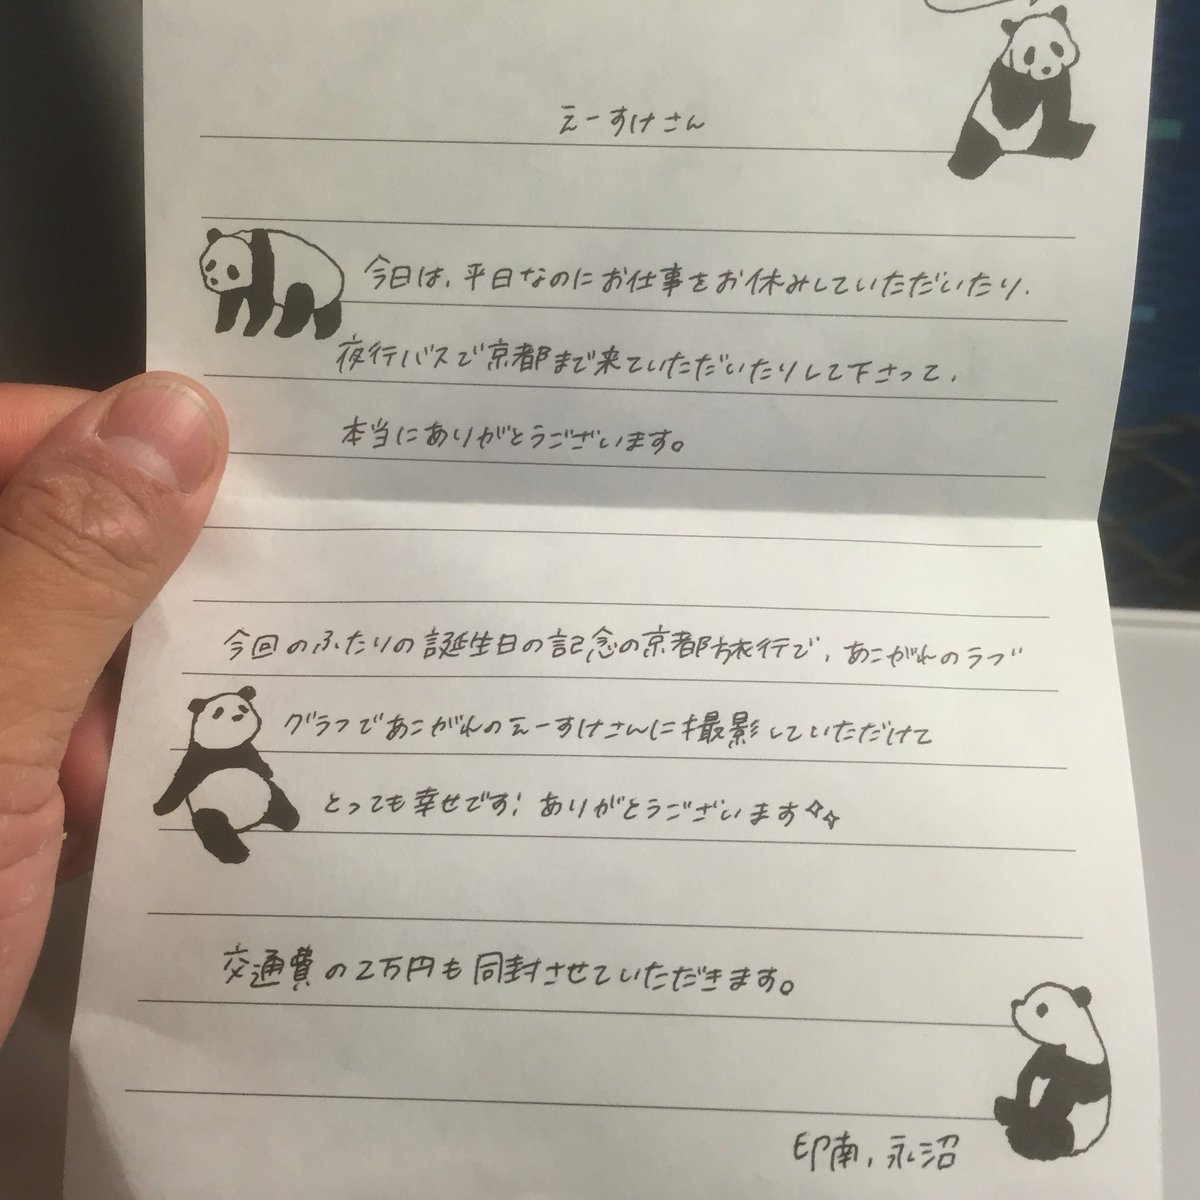 えーすけさん
今日は、平日なのにお仕事をお休みしていただいたり、
夜行バスで京都まで来ていただいたりして下さって、
本当にありがとうございます。
今回のふたりの誕生日の記念の京都旅行で、あこがれのラブ
グラフであこがれのえーすけさんに撮影していただけて
とっても幸せです! ありがとうございます✧✧
交通費の2万円も同封させていただきます。
印南、永沼